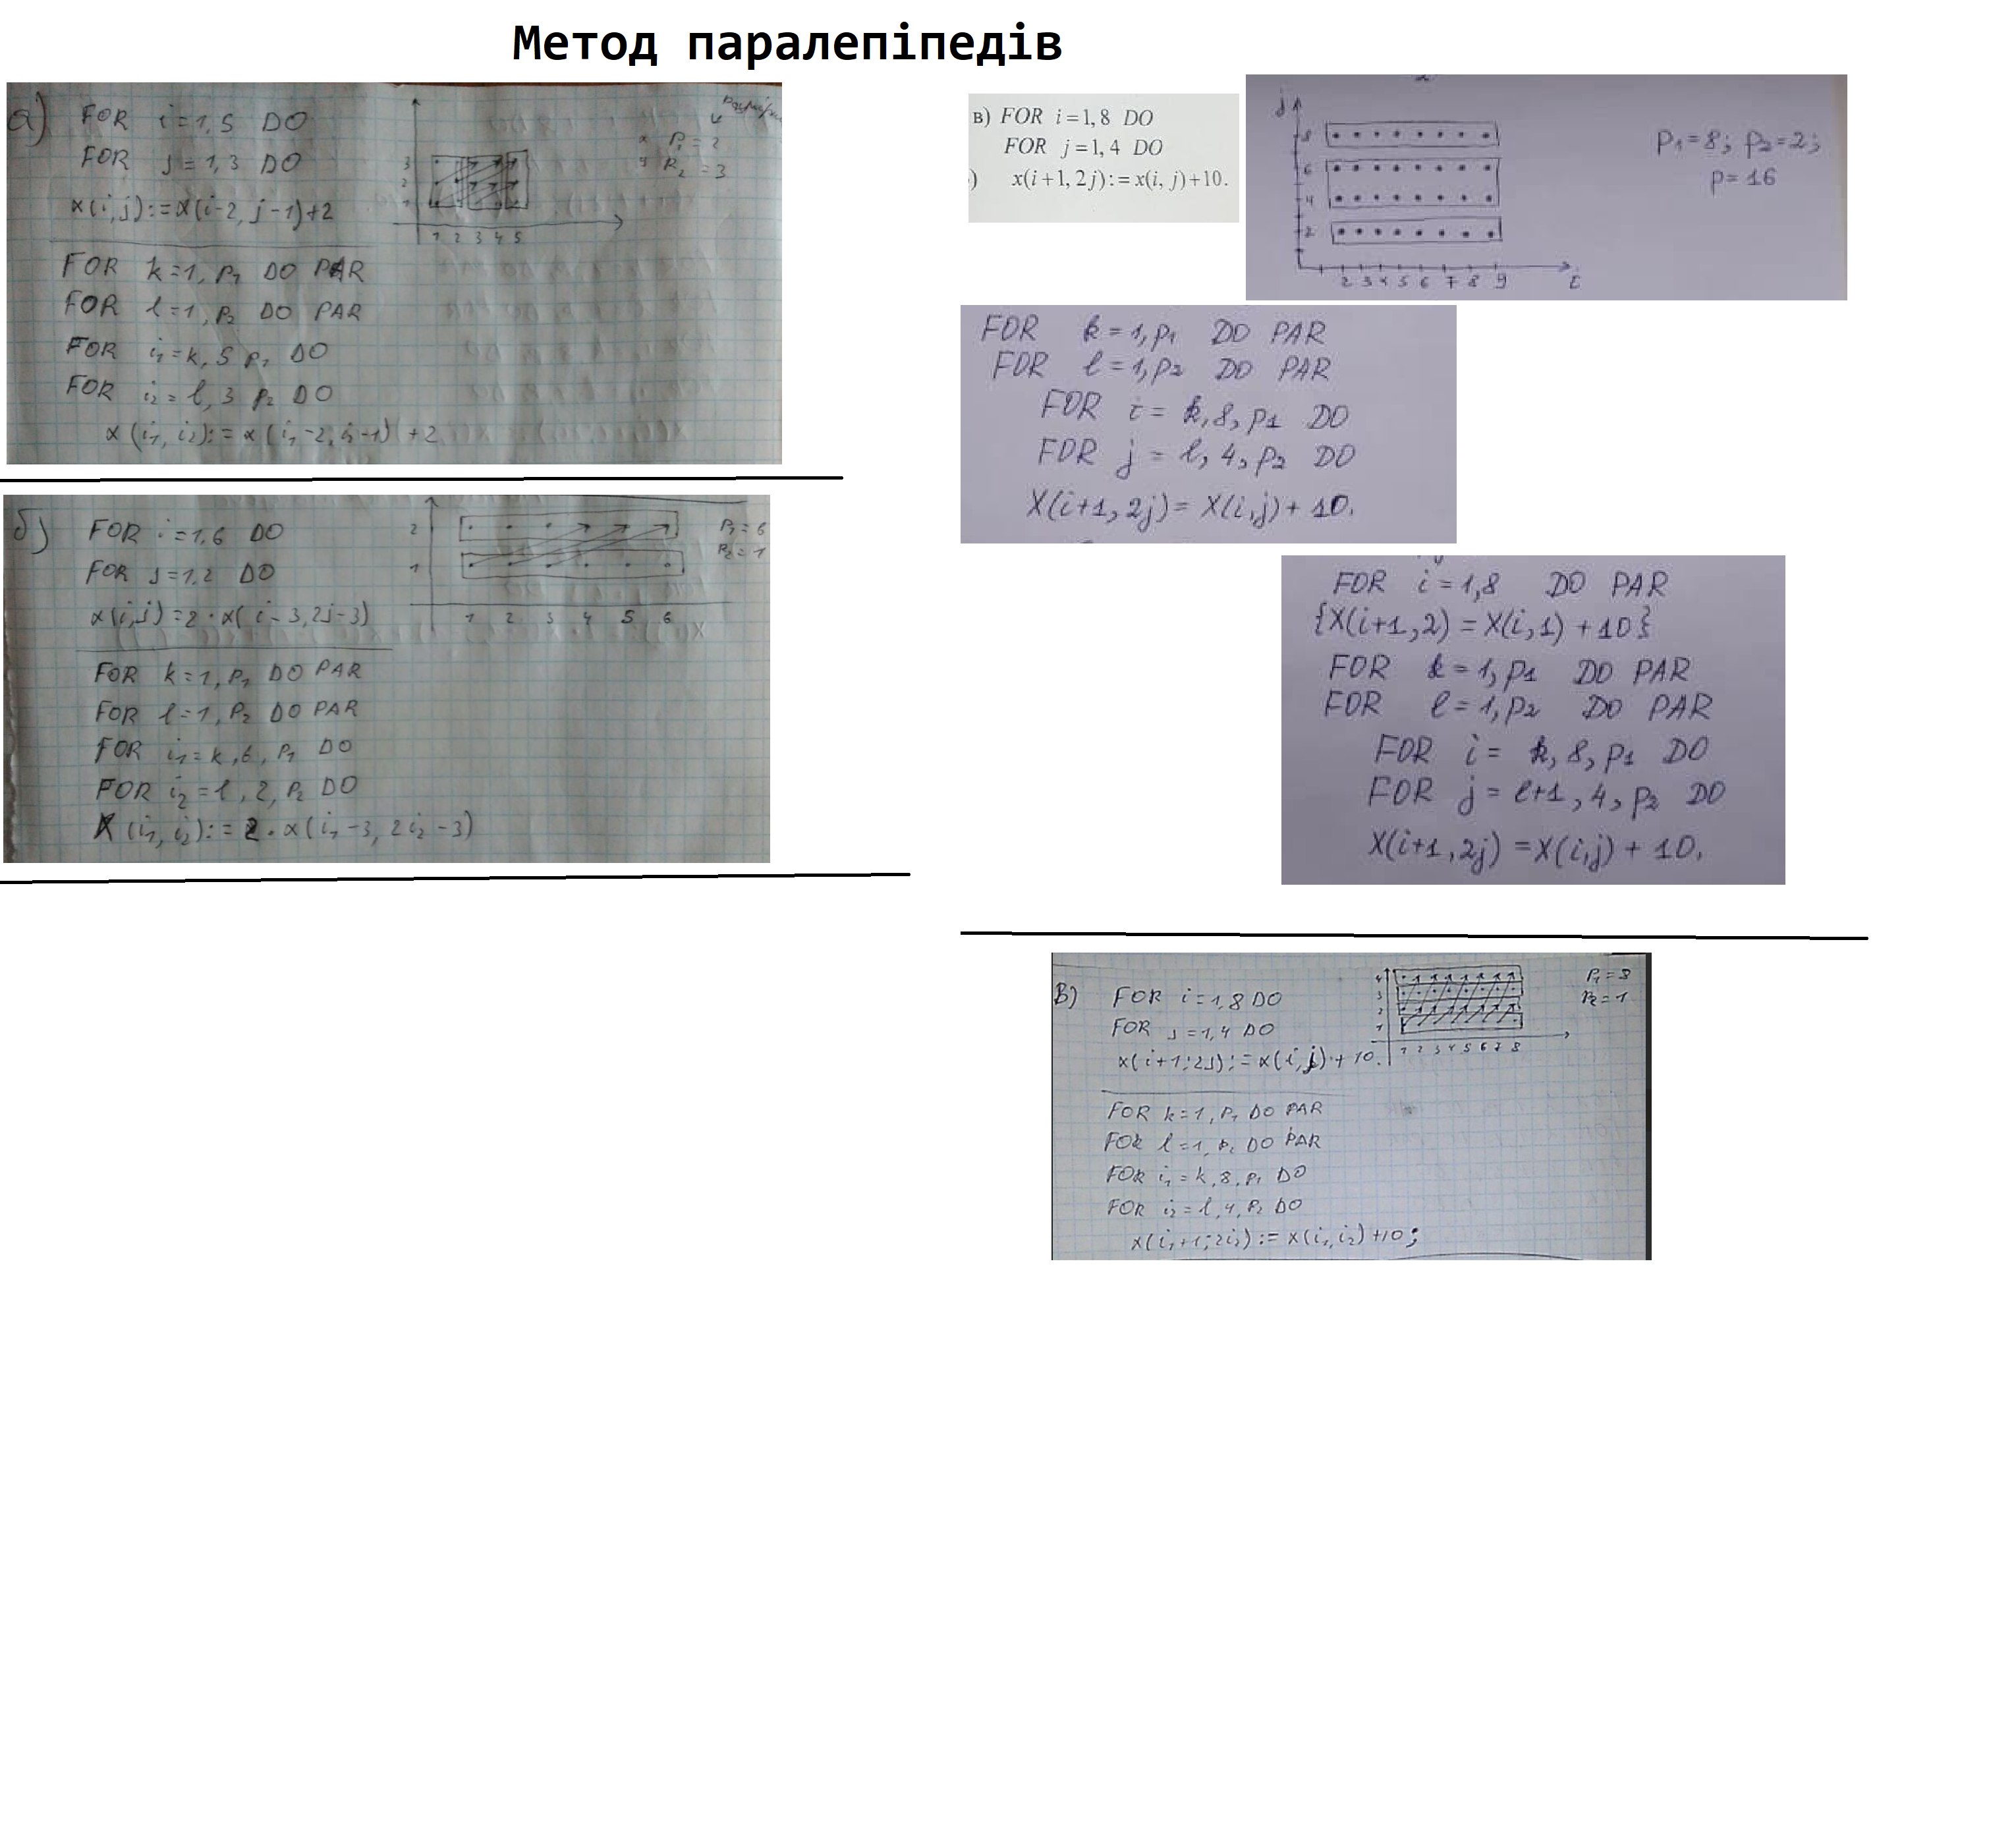 Метод паралепіпедів
а) FOR i=1,5 DO
FOR j=1,3 DO
x(i,j):=x(i-2, j-1)+2
3
2
1
1 2 3 4 5
x P1=2
y P2=3
FOR k=1, P1 DO PAR
FOR l=1, P2 DO PAR
FOR i1=k, 5 P1 DO
FOR i2=l, 3 P2 DO
x(i1, i2):=x(i1-2, i2-1)+2
б) FOR i=1,6 DO
FOR j=1,2 DO
x(i,j)=2·x(i-3,2j-3)
2
1
1 2 3 4 5 6
P1=6
P2=1
FOR k=1, P1 DO PAR
FOR l=1, P2 DO PAR
FOR i1=k,6, P1 DO
FOR i2=l,2, P2 DO
X(i1, i2):=2·x(i1-3, 2i2-3)
в) FOR i=1, 8 DO
FOR j=1, 4 DO
) x(i+1, 2j):=x(i, j)+10.
j
8
6
4
2
2 3 4 5 6 7 8 9 i
P1=8; P2=2;
P=16
FOR k=1,P1 DO PAR
FOR l=1,P2 DO PAR
FOR i=k,8,P1 DO
FOR j=l,4,P2 DO
X(i+1,2j)=X(i,j)+10.
FOR i=1,8 DO PAR
{X(i+1,2)=X(i,1)+10}
FOR k=1,P1 DO PAR
FOR l=1,P2 DO PAR
FOR i=k,8,P1 DO
FOR j=l+1,4,P2 DO
X(i+1,2j)=X(i,j)+10.
В) FOR i=1,8 DO
FOR j=1,4 DO
x(i+1;2j):=x(i,j)+10.
4
3
2
1
1 2 3 4 5 6 7 8
P1=8
P2=1
FOR k=1, P1 DO PAR
FOR l=1, P2 DO PAR
FOR i1=k,8,P1 DO
FOR i2=l,4,P2 DO
x(i1+1;2i2):=x(i1,i2)+10;